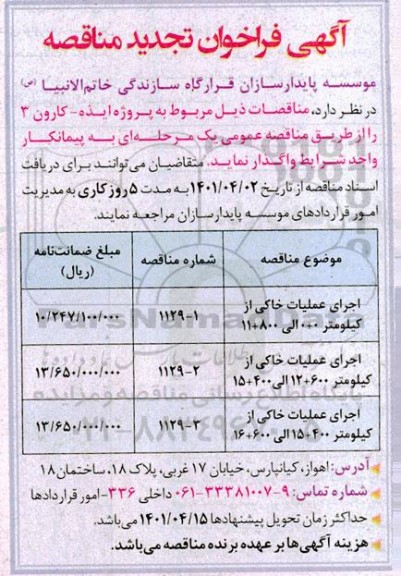 آگهی فراخوان تجدید مناقصه
موسسه پایدارسازان قرارگاه سازندگی خاتم‌الانبیا (ص)
در نظر دارد، مناقصات ذیل مربوط به پروژه ایذه - کارون ۳
را از طریق مناقصه عمومی یک مرحله‌ای به پیمانکار
واجد شرایط واگذار نماید. متقاضیان می‌توانند برای دریافت
اسناد مناقصه از تاریخ ۱۴۰۱/۰۴/۰۲ به مدت ۵ روز کاری به مدیریت
امور قراردادهای موسسه پایدارسازان مراجعه نمایند.
موضوع مناقصه شماره مناقصه مبلغ ضمانت‌نامه
(ریال)
اجرای عملیات خاکی از
کیلومتر ۰+۰ الی ۸۰۰+۱۱ ۱۱۲۹-۱ ۱۰/۲۴۷/۱۰۰/۰۰۰
اجرای عملیات خاکی از
کیلومتر ۶۰۰+۱۲ الی ۴۰۰+۱۵ ۱۱۲۹-۲ ۱۳/۶۵۰/۰۰۰/۰۰۰
اجرای عملیات خاکی از
کیلومتر ۴۰۰+۱۵ الی ۶۰۰+۱۶ ۱۱۲۹-۳ ۱۳/۶۵۰/۰۰۰/۰۰۰
آدرس: اهواز، کیانپارس، خیابان ۱۷ غربی، پلاک ۱۸، ساختمان ۱۸
شماره تماس: ۹-۳۳۳۸۱۰۰۷-۰۶۱ داخلی ۳۳۶- امور قراردادها
حداکثر زمان تحویل پیشنهادها ۱۴۰۱/۰۴/۱۵ می‌باشد.
هزینه آگهی‌ها بر عهده برنده مناقصه می‌باشد.